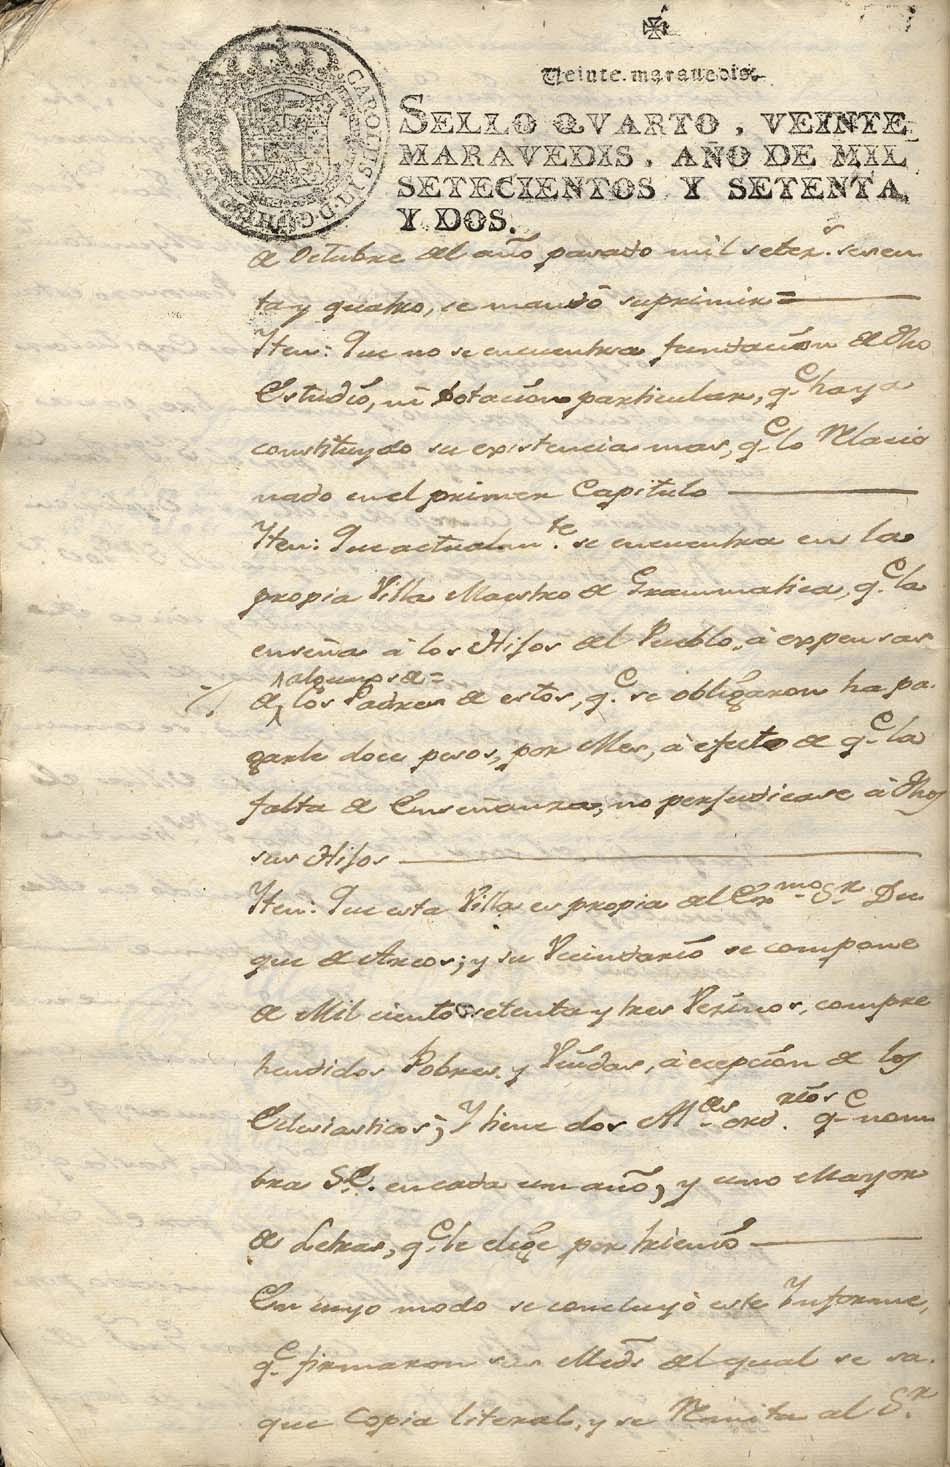 Veinte maravedis.
SELLO QVARTO, VEINTE
MARAVEDIS, AÑO DE MIL
SETECIENTOS Y SETENTA
Y DOS.
CAROLUS III D G HISP
de Octubre del año pasado mil setez.s sesen
ta y quatro, se mandó suprimir =
Iten: Que no se encuentra fundación de dho
Estudio, ni dotacion particular, q.e haya
constituydo su existencia mas, q.e lo Relacio
nado en el primer Capitulo
Iten: Que actualm.te se encuentra en la
propia Villa Maestro de Grammatica, q.e la
enseña à los Hijos del Pueblo, à expensas
algunos de =
de los Padres de estos, q.e se obligaron ha pa-
garle doce pesos, por Mes, à efecto de q.e la
falta de Enseñanza, no perjudicase à dhos
sus Hijos
Iten: Que esta Villa es propia del Ex.mo S.r Du
que de Arcos; y su Vecindario se compone
de Mil ciento setenta y tres Vezinos, compre
hendidos Pobres, y Viudas, à ecepción de los
Eclesiasticos; Y tiene dos Al.des ord.rios q.e nom
bra S.E. en cada un año, y uno Mayor
de Letras, q.e le elige por trienio
En cuyo modo se concluyó este Informe,
q.e firmaron sus Mrds del qual se sa-
que Copia literal, y se Remita al S.r